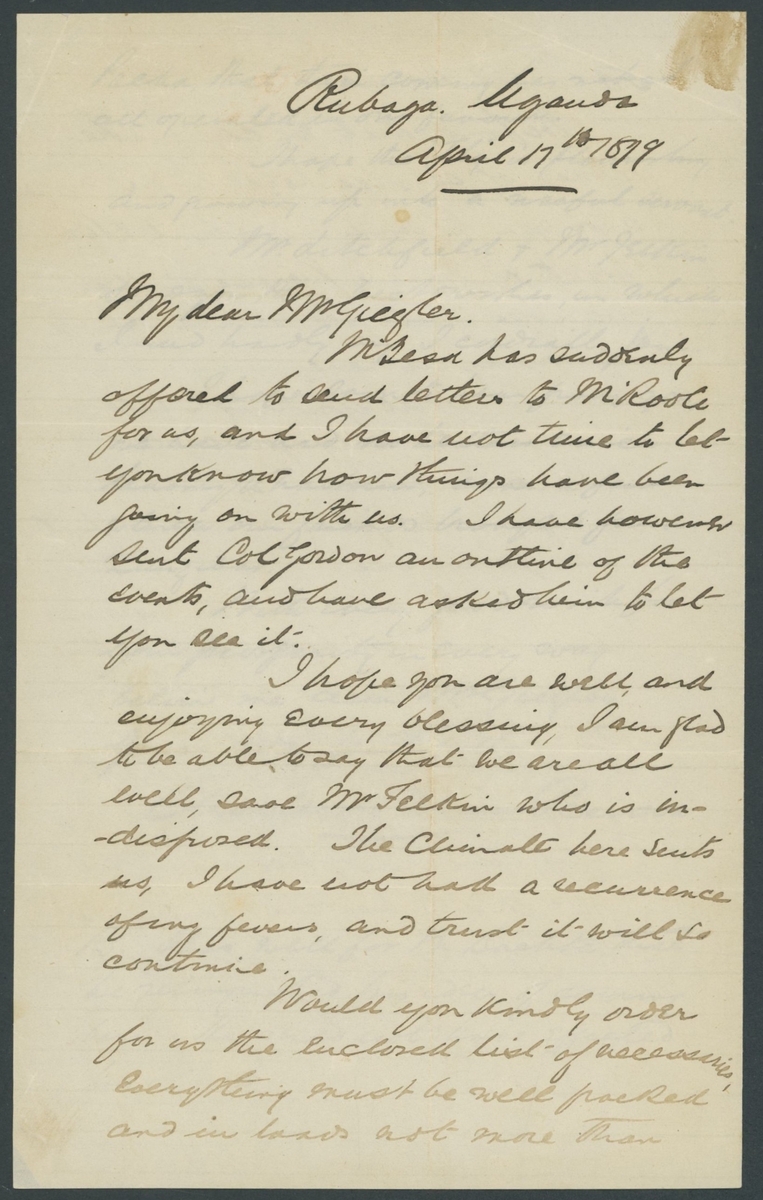 Rubaga. Uganda
April 17th 1879
My dear Mr Giegler.
Mtesa has suddenly
offered to send letters to M'Rooli
for us, and I have not time to let
you know how things have been
going on with us. I have however
sent Col Gordon an outline of the
events, and have asked him to let
you see it.
I hope you are well, and
enjoying every blessing, I am glad
to be able to say that we are all
well, save Mr Felkin who is in-
-disposed. The Climate here suits
us, I have not had a recurrence
of my fevers, and trust it will so
continue.
Would you kindly order
for us the enclosed list of necessaries,
Everything must be well packed
and in loads not more than